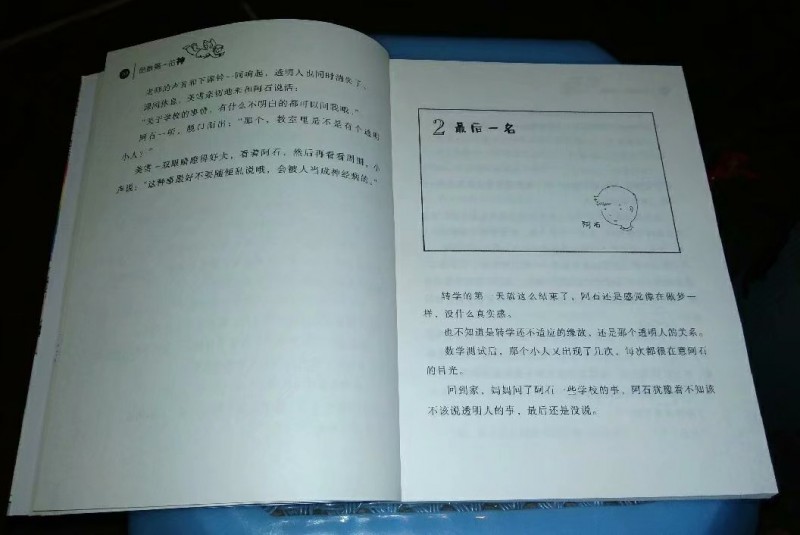 倒数第一的神
老师的声音和下课铃一同响起，透明人也同时消失了。
课间休息，美雪亲切地来和阿石说话：
“关于学校的事情，有什么不明白的都可以问我哦。”
阿石一听，脱口而出：“那个，教室里是不是有个透明
小人？”
美雪一双眼睛瞪得好大，看着阿石，然后再看看周围，小
声说：“这种感最好不要随便乱说哦，会被人当成神经病的。”
2 最后一名
阿石
转学的第一天就这么结束了，阿石还是感觉像在做梦一
样，没什么真实感。
也不知道是转学还不适应的缘故，还是那个透明人的关系。
数学测试后，那个小人又出现了几次，每次都很在意阿石
的目光。
回到家，妈妈问了阿石一些学校的事，阿石犹豫着不知该
不该说透明人的事，最后还是没说。